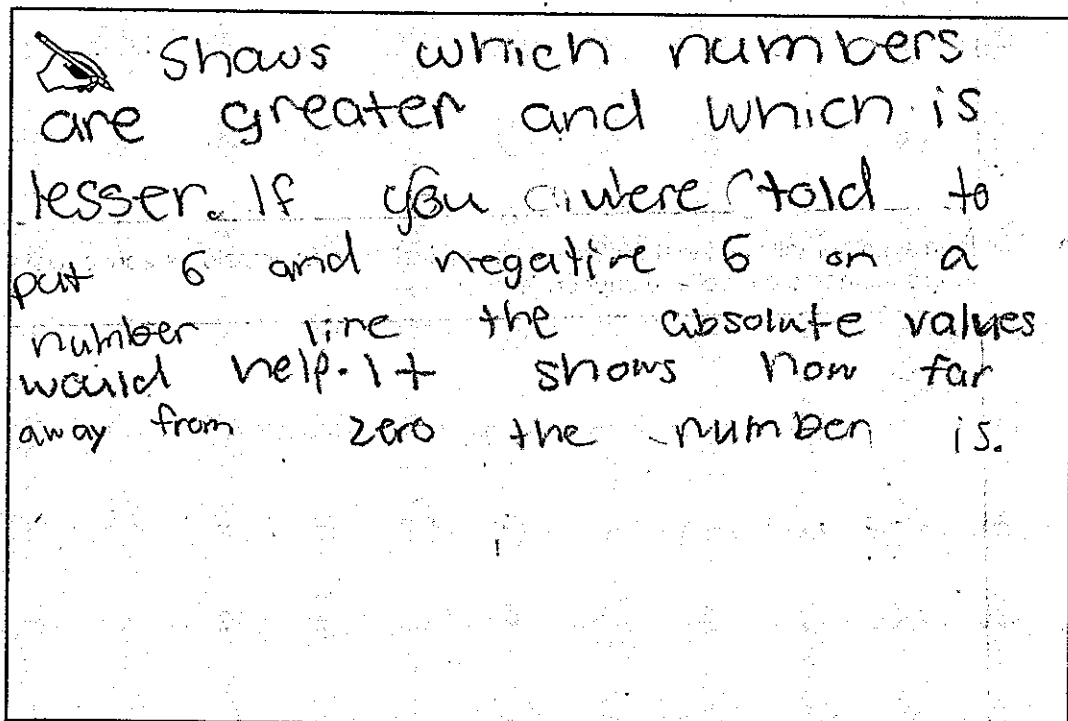 Shows which numbers
are greater and which is
lesser. If you were told to
put 6 and negative 6 on a
number line the absolute values
would help. It shows how far
away from zero the number is.